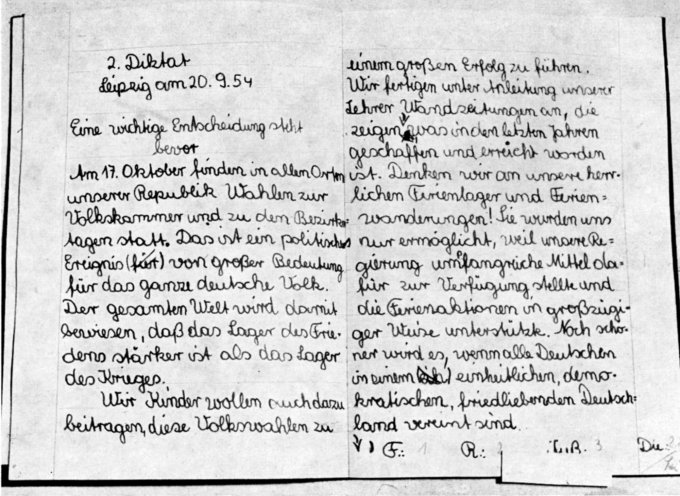 2. Diktat
Leipzig am 20. 9. 54
Eine wichtige Entscheidung steht
bevor
Am 17. Oktober finden in allen Orten
unserer Republik Wahlen zur
Volkskammer und zu den Bezirks-
tagen statt. Das ist ein politisches
Ereignis (für) von großer Bedeutung
für das ganze deutsche Volk.
Der gesamten Welt wird damit
bewiesen, daß das Lager des Frie-
dens stärker ist als das Lager
des Krieges.
Wir Kinder wollen auch dazu
beitragen, diese Volkswahlen zu
einem großen Erfolg zu führen.
Wir fertigen unter Anleitung unserer
Lehrer Wandzeitungen an, die
zeigen, was in den letzten Jahren
geschaffen und erreicht worden
ist. Denken wir an unsere herr-
lichen Ferienlager und Ferien=
wanderungen! Sie wurden uns
nur ermöglicht, weil unsere Re=
gierung umfangreiche Mittel da-
für zur Verfügung stellte und
die Ferienaktionen in großzügi-
ger Weise unterstützte. Noch schö-
ner wird es, wenn alle Deutschen
in einem einheitlichen, demo-
kratischen, friedliebenden Deutsch-
land vereint sind.
F.: 1 R.: 2 3 Die: